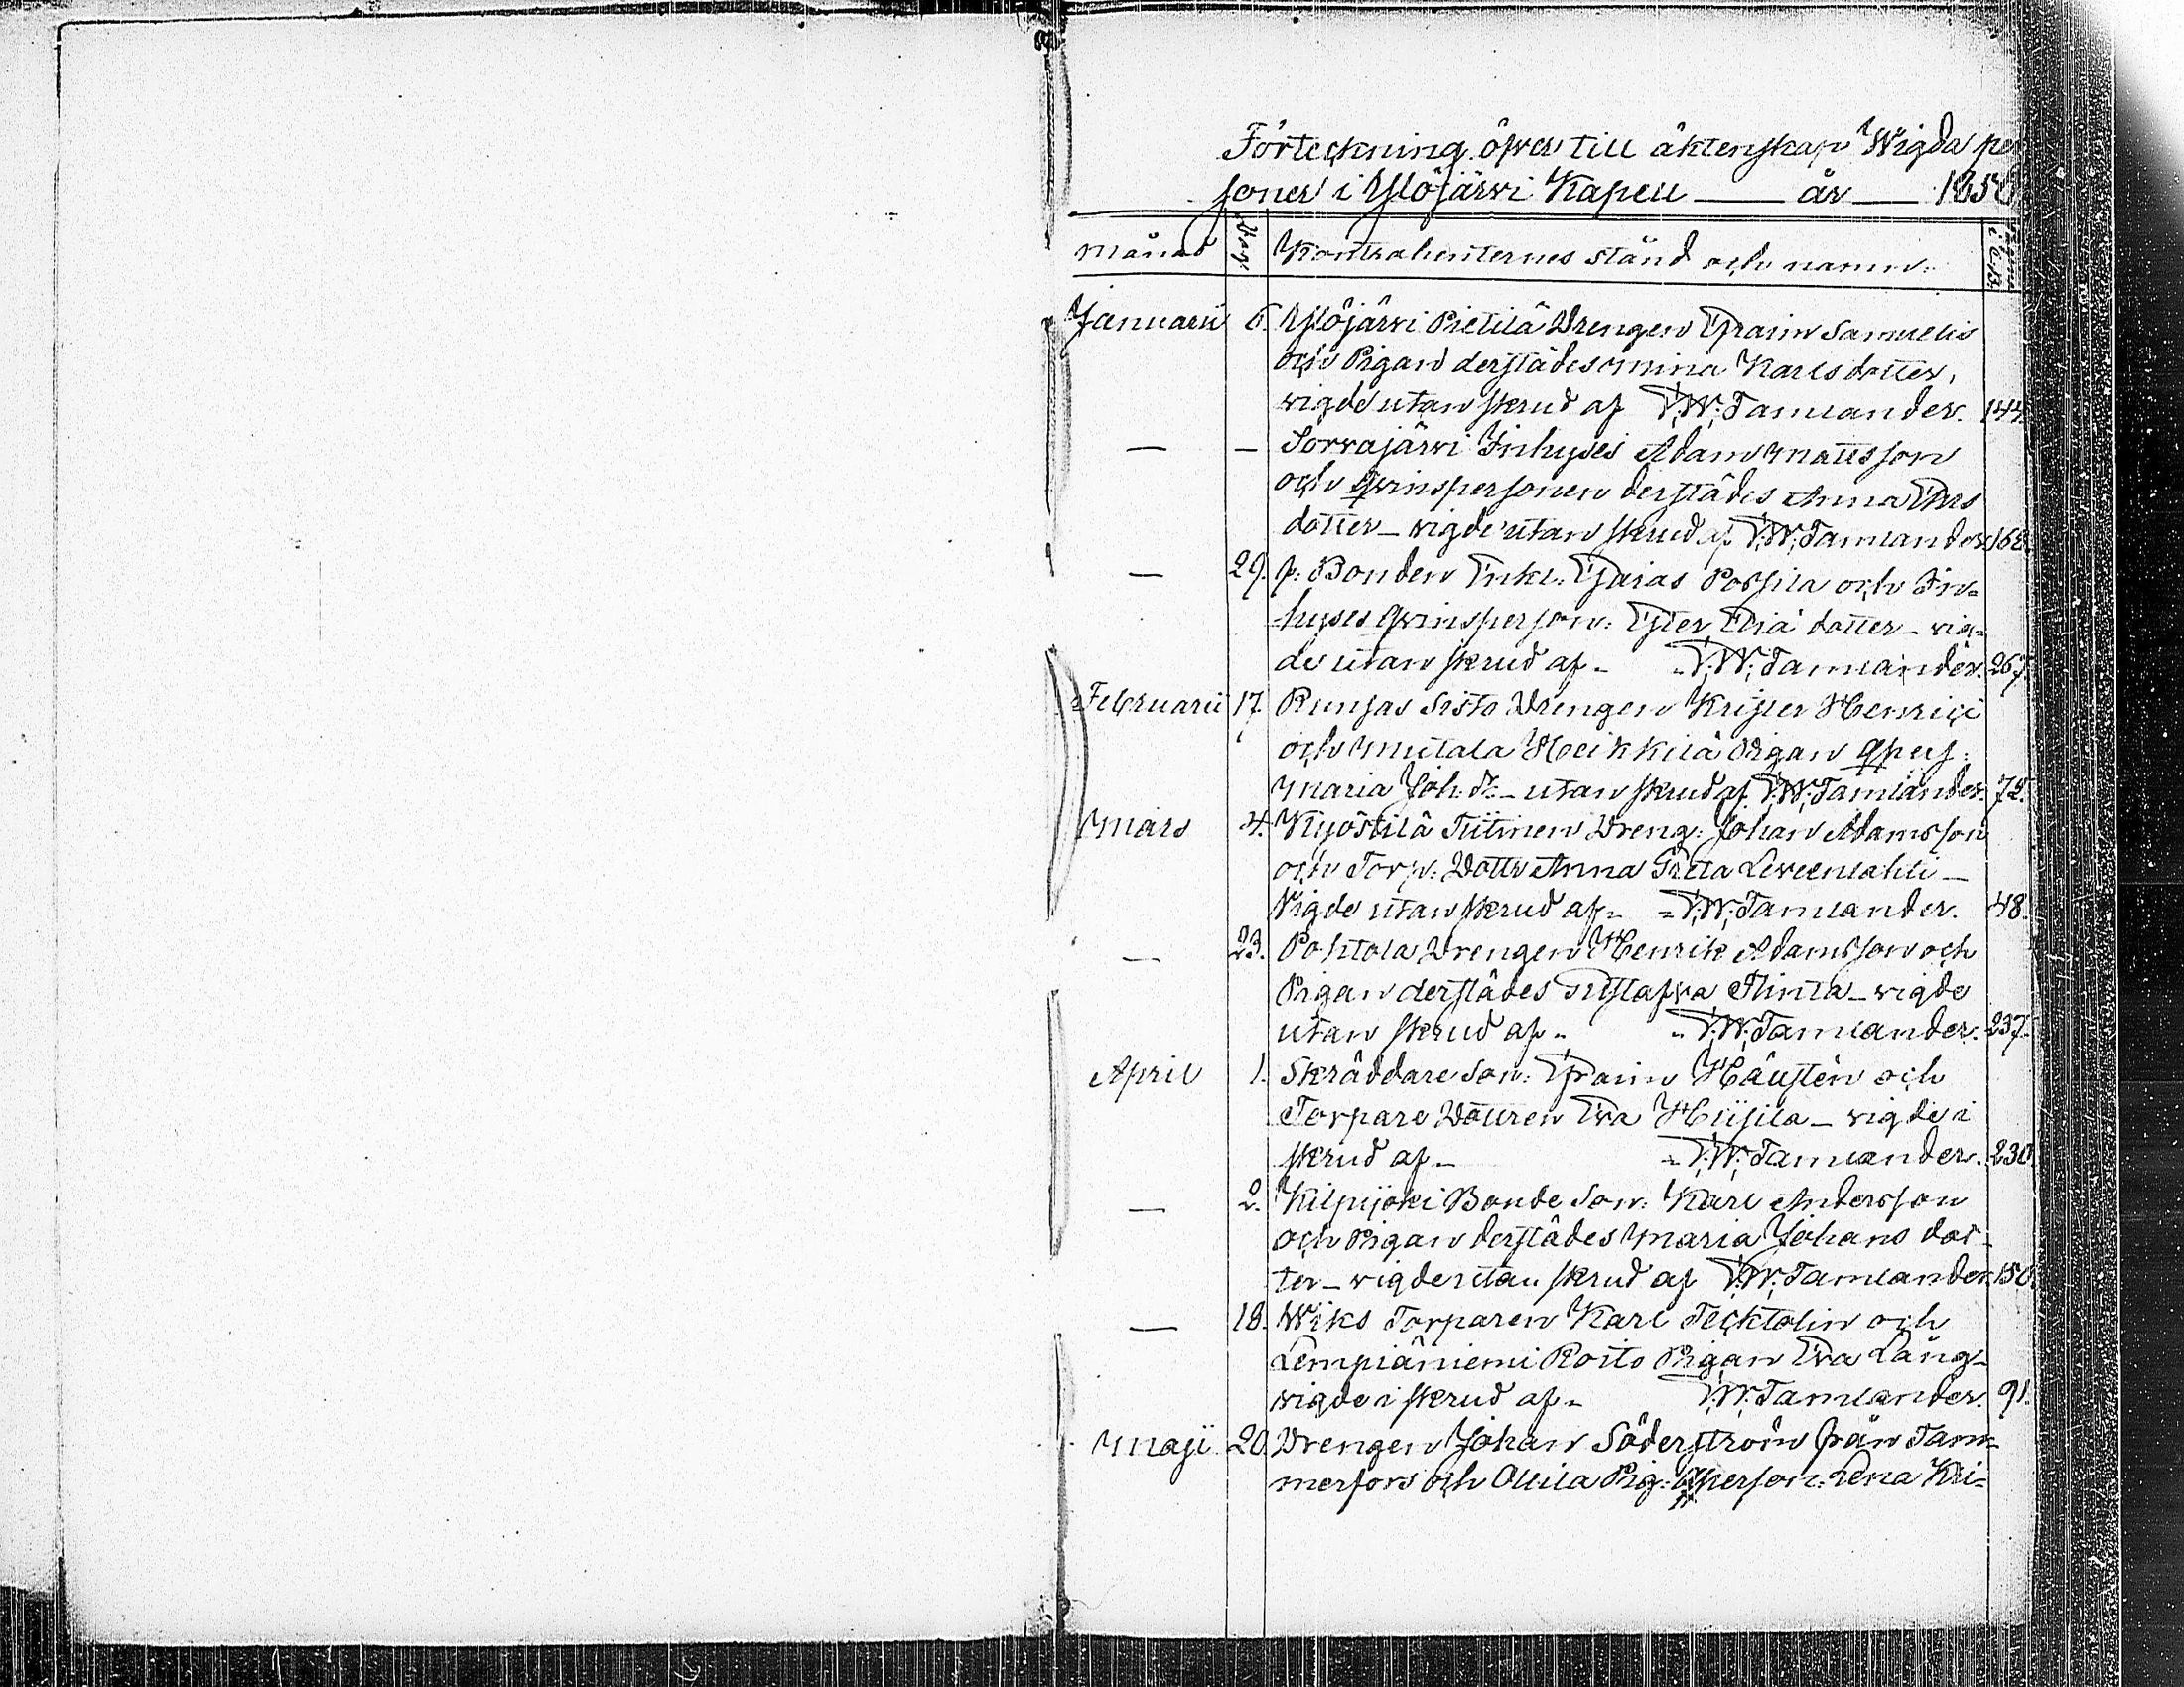 Förteckning öfver till äktenskap Wigda per
soner i Ylöjärvi Kapell — år — 1850
Månad Dag. Kontrahenternes stånd och namn. i C.B.
Januarii 6. Ylöjärvi Pietilä Drengen Efraim Samuelis
och Pigan derstädes Mina Karlsdotter,
vigde utan skrud af F:W:Tamlander. 144.
— — Sorvajärvi Inhyses Adam Mattsson
och Qvinspersonen derstädes Anna Ers
dotter – vigde utan skrud af F:W:Tamlander. 168.
— 29. f: Bonden Enkl: Esaias Possila och In=
hyses Qvinsperson: Ester Eliä dotter – vig=
de utan skrud af – F:W:Tamlander. 267.
Februarii 17. Runsas Sisto Drengen Krister Henrici
och Mutala Heikkilä Pigan Qpers:
Maria Joh:dr: – utan skrud af F:W:Tamlander. 72.
Mars 4. Kyöstilä Tiitinen Dreng: Johan Adamsson
och Torp: Dottr Anna Greta Leveenlahti –
Vigde utan skrud af – F:W:Tamlander. 48.
— 23. Pohtola Drengen Henrik Adamsson och
Pigan derstädes Gustafva Flinta – vigde
utan skrud af – F:W:Tamlander. 237.
April 1. Skräddare Son: Efraim Hällsten och
Torpare Dottren Eva Hiisila – vigde i
skrud af – F:W:Tamlander. 230.
— 2. Kilpijoki Bonde Son: Karl Andersson
och Pigan derstädes Maria Johans dot=
ter – vigde utan skrud af F:W:Tamlander. 150.
— 18. Wiks Torparen Karl Tecktolin och
Lempiäniemi Roito Pigan Eva Lång –
vigde i skrud af – F:W:Tamlander. 91.
Maji 20. Drengen Johan Söderström från Tam=
merfors och Ollila Pig: Qperson: Lena Kri=